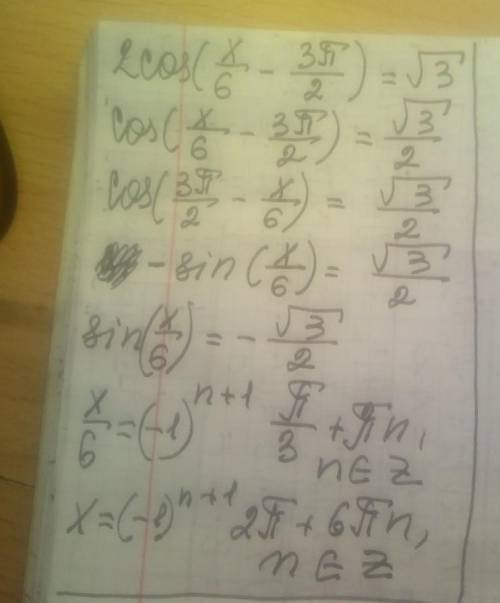 2cos(x/6 - 3π/2) = √3
cos(x/6 - 3π/2) = √3/2
cos(3π/2 - x/6) = √3/2
- sin(x/6) = √3/2
sin(x/6) = - √3/2
x/6 = (-1)^(n+1) π/3 + πn,
n ∈ Z
x = (-1)^(n+1) 2π + 6πn,
n ∈ Z